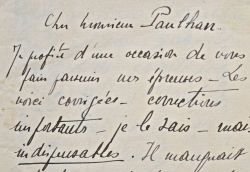 Cher Monsieur Paulhan.
Je profite d'une occasion de vous
faire parvenir mes épreuves - Les
voici corrigées - corrections
importants - je le sais - mais
indispensables. Il manquait